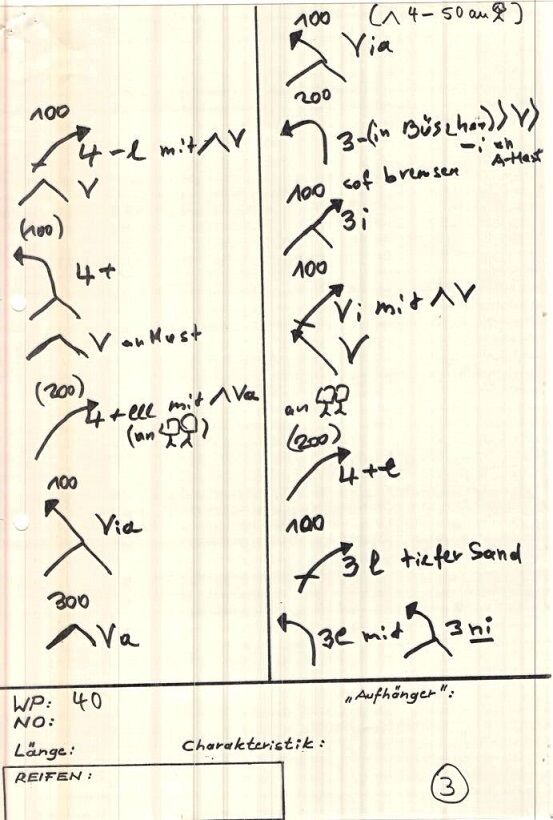 100
4-l mit ∧V
V
(100)
4+
V an Mast
(200)
4+lll mit ∧Va
(an
)
100
Via
300
Va
100
(∧ 4-50 an
)
Via
200
3-(in Büschen)⟩⟩V⟩
-i an
A-Mast
100 sof bremsen
3i
100
Vi mit ∧V
V
an
(200)
4+l
100
3l tiefer Sand
3l mit 3ni
WP: 40
„Aufhänger":
NO:
Länge:
Charakteristik:
REIFEN:
3